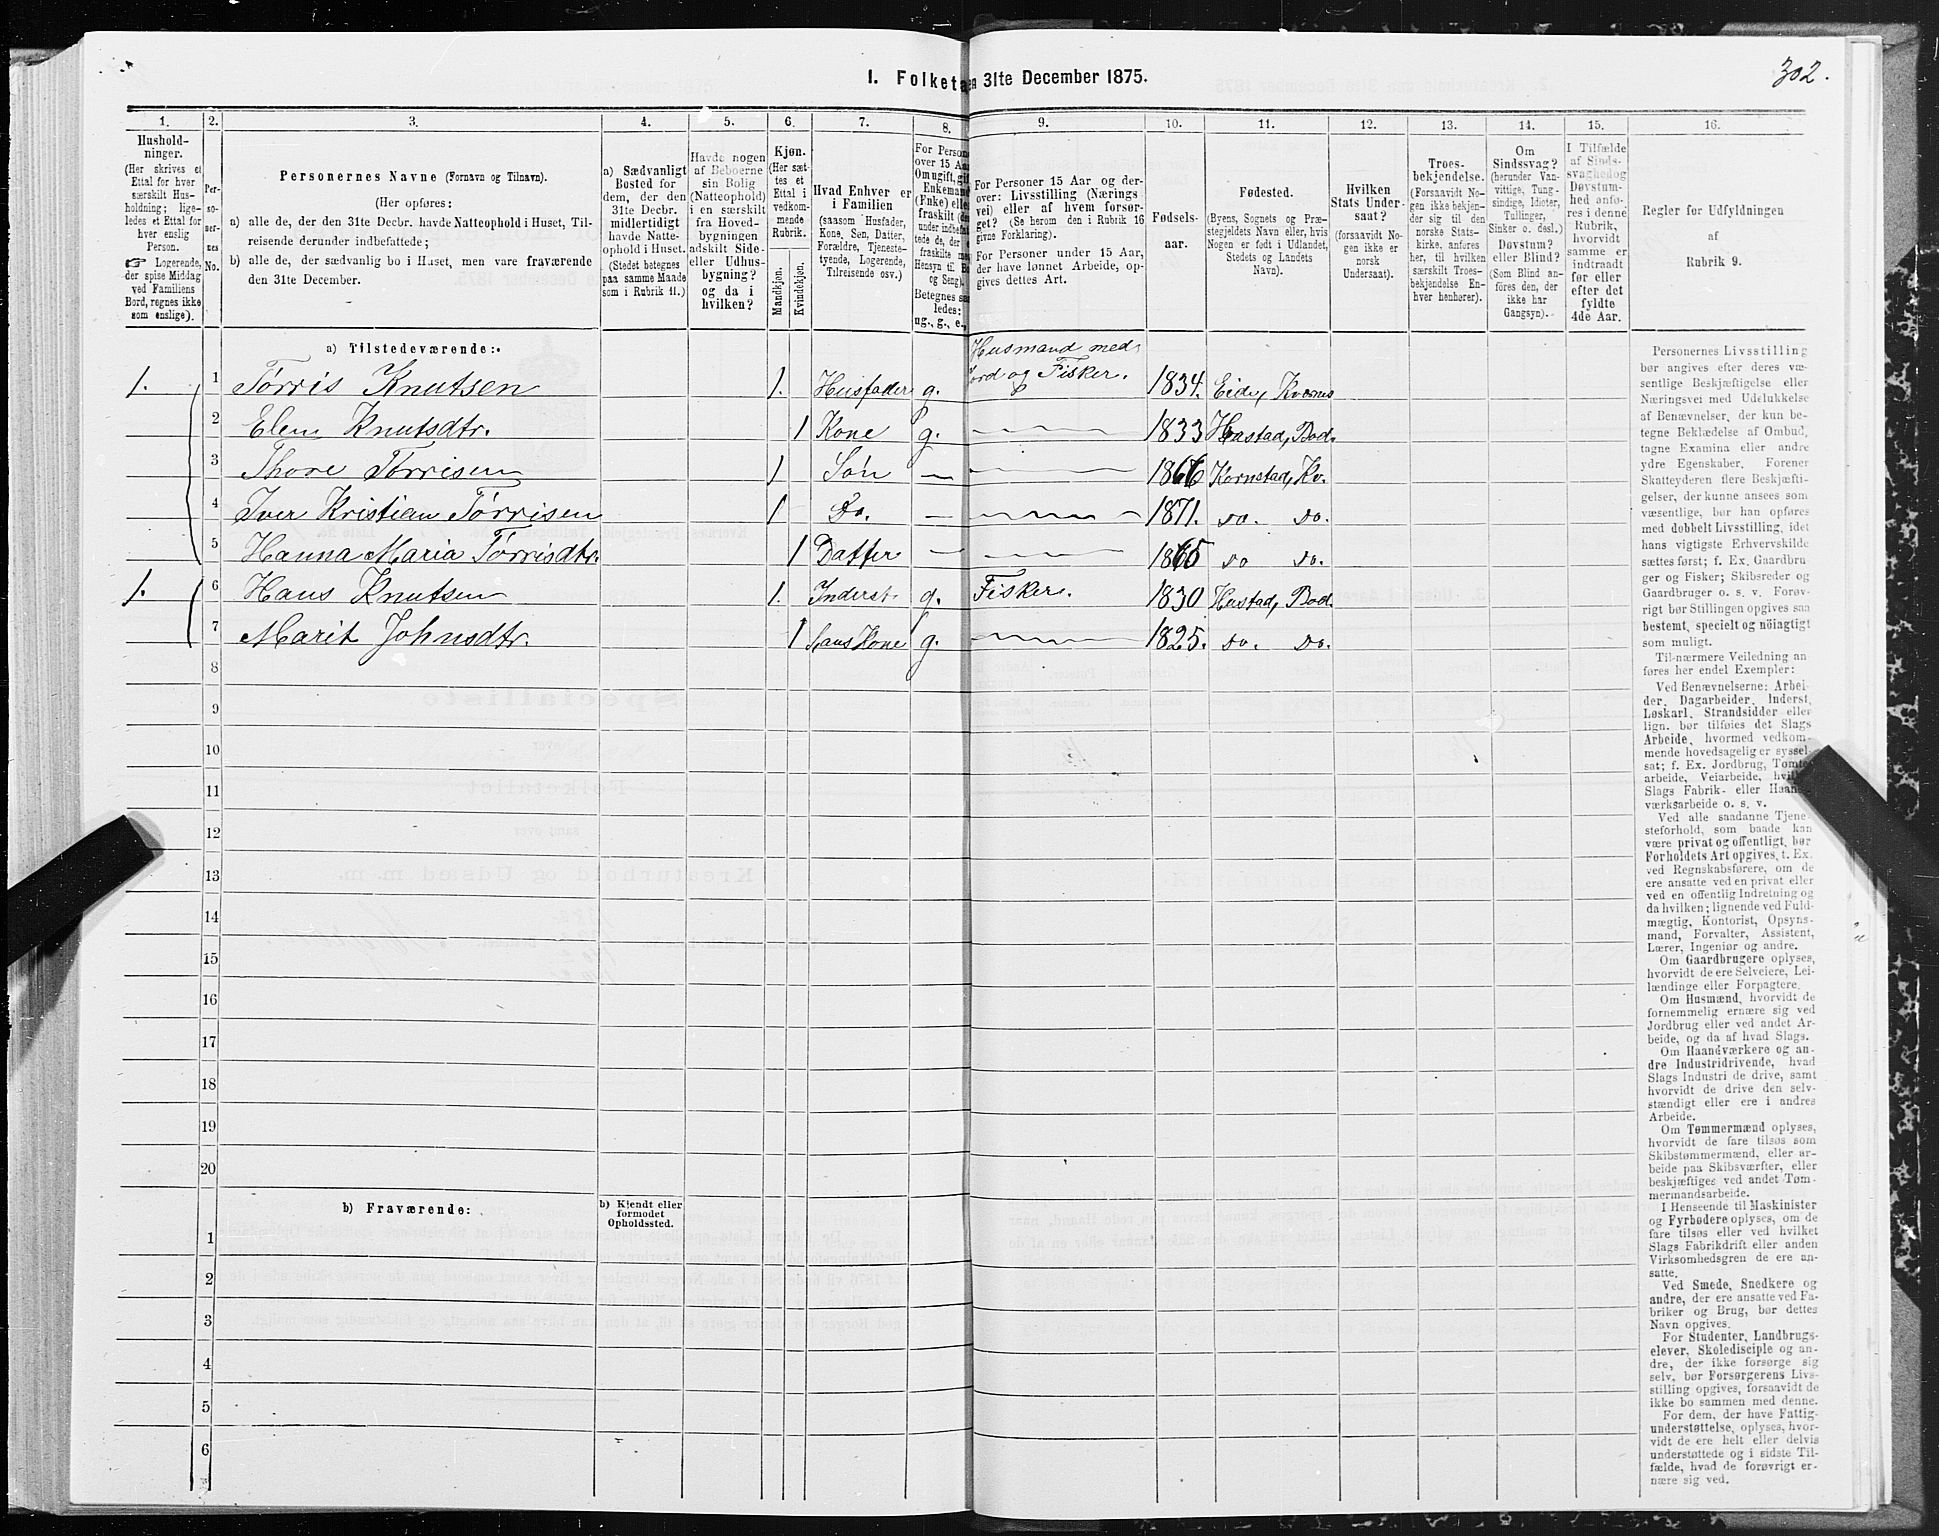 302.
1. Folketa en 31te December 1875.
1. 2. 3. 4. 5. 6. 7. 8. 9. 10. 11. 12. 13. 14. 15. 16.
Hushold-
ninger.
(Her skrives et
Ettal for hver
særskilt Hus-
holdning; lige-
ledes et Ettal for
hver enslig
Person.
☞ Logerende,
der spise Middag
ved Familiens
Bord, regnes ikke
som enslige).
Per-
so-
ner-
nes
No.
Personernes Navne (Fornavn og Tilnavn).
(Her opføres:
a) alle de, der den 31te Decbr. havde Natteophold i Huset, Til-
reisende derunder indbefattede;
b) alle de, der sædvanlig bo i Huset, men vare fraværende
den 31te December.
a) Sædvanligt
Bosted for
dem, der den
31te Decbr.
midlertidigt
havde Natte-
ophold i Huset.
(Stedet betegnes
paa samme Maade
som i Rubrik 11.)
Havde nogen
af Beboerne
sin Bolig
(Natteophold)
i en særskilt
fra Hoved-
bygningen
adskilt Side-
eller Udhus-
bygning?
og da i
hvilken?
Kjøn.
(Her sæt-
tes et
Ettal i
vedkom-
mende
Rubrik.
Mandkjøn.
Kvindekjøn.
Hvad Enhver er
i Familien
(saasom Husfader,
Kone, Søn, Datter,
Forældre, Tjeneste-
tyende, Logerende,
Tilreisende osv.)
For Persone
over 15 Aa
Om ugift, gif
Enkemand
(Enke) elle
fraskilt (de
under indbefat
tede de, der e
fraskilte me
Hensyn til Bo
og Seng).
Betegnes saa
ledes:
ug., g., e.,
For Personer 15 Aar og der-
over: Livsstilling (Nærings-
vei) eller af hvem forsør-
get? (Se herom den i Rubrik 16
givne Forklaring).
For Personer under 15 Aar,
der have lønnet Arbeide, op-
gives dettes Art.
Fødsels-
aar.
Fødested.
(Byens, Sognets og Præ-
stegjeldets Navn eller, hvis
Nogen er født i Udlandet,
Stedets og Landets
Navn).
Hvilken
Stats Under-
saat?
(forsaavidt No-
gen ikke er
norsk
Undersaat).
Troes-
bekjendelse.
(Forsaavidt No-
gen ikke bekjen-
der sig til den
norske Stats-
kirke, anføres
her, til hvilken
særskilt Troes-
bekjendelse En-
hver henhører).
Om
Sindssvag?
(herunder Van-
vittige, Tung-
sindige, Idioter,
Tullinger,
Sinker o. desl.)
Døvstum?
eller Blind?
(Som Blind an-
føres den, der
ikke har
Gangsyn).
I Tilfælde
af Sinds-
svaghed og
Døvstum-
hed anfø-
res i denne
Rubrik,
hvorvidt
samme er
indtraadt
før eller
efter det
fyldte
4de Aar.
Regler før Udfyldningen
af
Rubrik 9.
a) Tilstedeværende:
Husmand med
Jord og Fisker.
1. 1 Tørris Knutsen 1. Husfader g. 1834. Eide, Kværnes
2 Elen Knutsdtr. 1 Kone g. 1833 Hustad, Bod.
3 Thore Tørrisen 1 Søn 1866 Kornstad, Kv.
4 Iver Kristian Tørrisen 1 Do. 1871. Do. Do.
5 Hanna Maria Tørrisdtr. 1 Datter 1865 Do Do.
1. 6 Hans Knutsen 1. Inderst g. Fisker. 1830 Hustad, Bod.
7 Marit Johnsdtr. 1 hans Kone g. 1825. Do. Do.
8
9
10
11
12
13
14
15
16
17
18
19
20
b) Fraværende:
b) Kjendt eller
formodet
Opholdssted.
1
2
3
4
5
6
Personernes Livsstilling
bør angives efter deres væ-
sentlige Beskjæftigelse eller
Næringsvei med Udelukkelse
af Benævnelser, der kun be-
tegne Beklædelse af Ombud,
tagne Examina eller andre
ydre Egenskaber. Forener
Skatteyderen flere Beskjæfti-
gelser, der kunne ansees som
væsentlige, bør han opføres
med dobbelt Livsstilling, idet
hans vigtigste Erhvervskilde
sættes først; f. Ex. Gaardbru-
ger og Fisker; Skibsreder og
Gaardbruger o. s. v. Forøv-
rigt bør Stillingen opgives saa
bestemt, specielt og nöiagtigt
som muligt.
Til nærmere Veiledning an
føres her endel Exempler:
Ved Benævnelserne: Arbei-
der, Dagarbeider, Inderst,
Løskarl, Strandsidder eller
lign. bør tilføies det Slags
Arbeide, hvormed vedkom-
mende hovedsagelig er syssel-
sat; f. Ex. Jordbrug, Tømte
arbeide, Veiarbeide, hvil
Slags Fabrik- eller Haan
værksarbeide o. s. v.
Ved alle saadanne Tjene-
steforhold, som baade kan
være privat og offentligt, bør
Forholdets Art opgives, t. Ex.
ved Regnskabsførere, om de
ere ansatte ved en privat eller
ved en offentlig Indretning og
da hvilken; lignende ved Fuld-
mægtig, Kontorist, Opsyns-
mand, Forvalter, Assistent,
Lærer, Ingeniør og andre.
Om Gaardbrugere oplyses,
hvorvidt de ere Selveiere, Lei-
lændinge eller Forpagtere.
Om Husmænd, hvorvidt de
fornemmelig ernære sig ved
Jordbrug eller ved andet Ar-
beide, og da af hvad Slags.
Om Haandværkere og an-
dre Industridrivende, hvad
Slags Industri de drive, samt
hvorvidt de drive den selv-
stændigt eller ere i andres
Arbeide.
Om Tømmermænd oplyses,
hvorvidt de fare tilsøs som
Skibstømmermænd, eller ar-
beide paa Skibsværfter, eller
beskjæftiges ved andet Tøm-
mermandsarbeide.
I Henseende til Maskinister
og Fyrbødere oplyses, om de
fare tilsøs eller ved hvilket
Slags Fabrikdrift eller anden
Virksomhedsgren de ere an-
satte.
Ved Smede, Snedkere og
andre, der ere ansatte ved Fa-
briker og Brug, bør dettes
Navn opgives.
For Studenter, Landbrugs-
elever, Skoledisciple og an-
dre, der ikke forsørge sig
selv, bør Forsørgerens Livs-
stilling opgives, forsaavidt de
ikke bo sammen med denne.
For dem, der have Fattig-
understøttelse, oplyses, hvor-
vidt de ere helt eller delvis
understøttede og i sidste Til-
fælde, hvad de forøvrigt er-
nære sig ved.